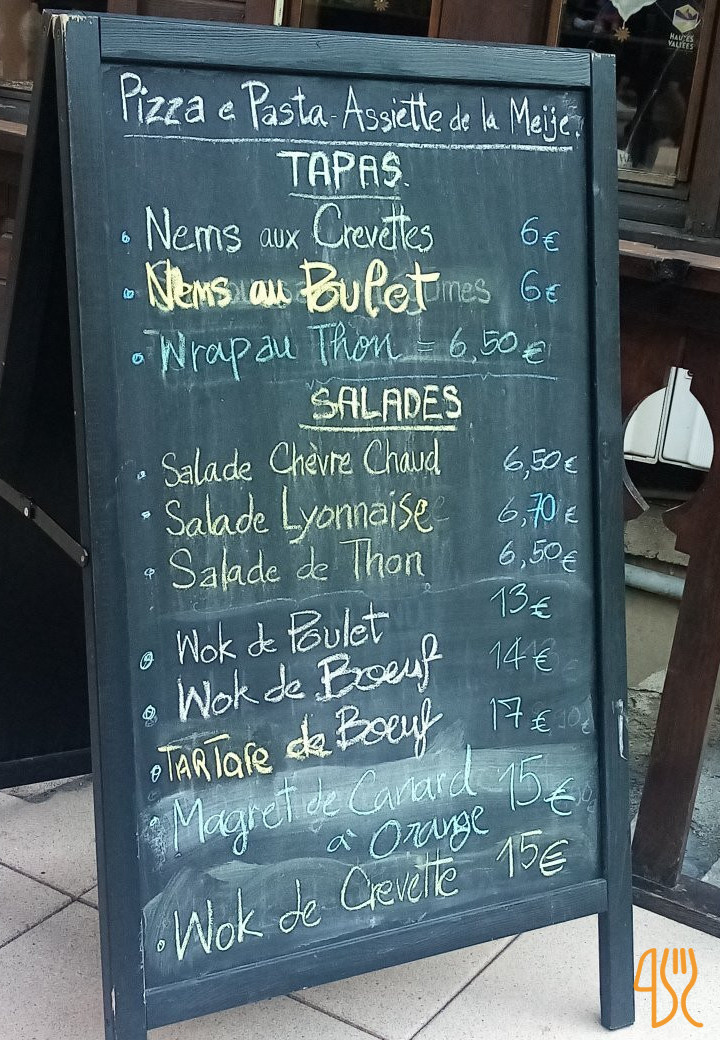 HAUTES
VALLÉES
Pizza e Pasta - Assiette de la Meije.
TAPAS
Nems aux Crevettes 6€
Nems au Poulet 6€
Wrap au Thon = 6,50€
SALADES
Salade Chèvre Chaud 6,50€
Salade Lyonnaise 6,70€
Salade de Thon 6,50€
Wok de Poulet 13€
Wok de Boeuf 14€
TARTare de Boeuf 17€
Magret de Canard 15€
à Orange
Wok de Crevette 15€